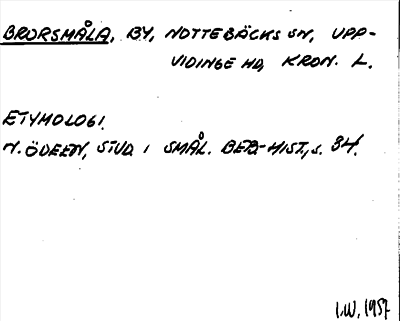 BRORSMÅLA, BY, NOTTEBÄCKS SN, UPP-
VIDINGE HD, KRON. L.
ETYMOLOGI.
N. ÖDEEN, STUD. I SMÅL. BEB-HIST., S. 34.
I.W. 1957